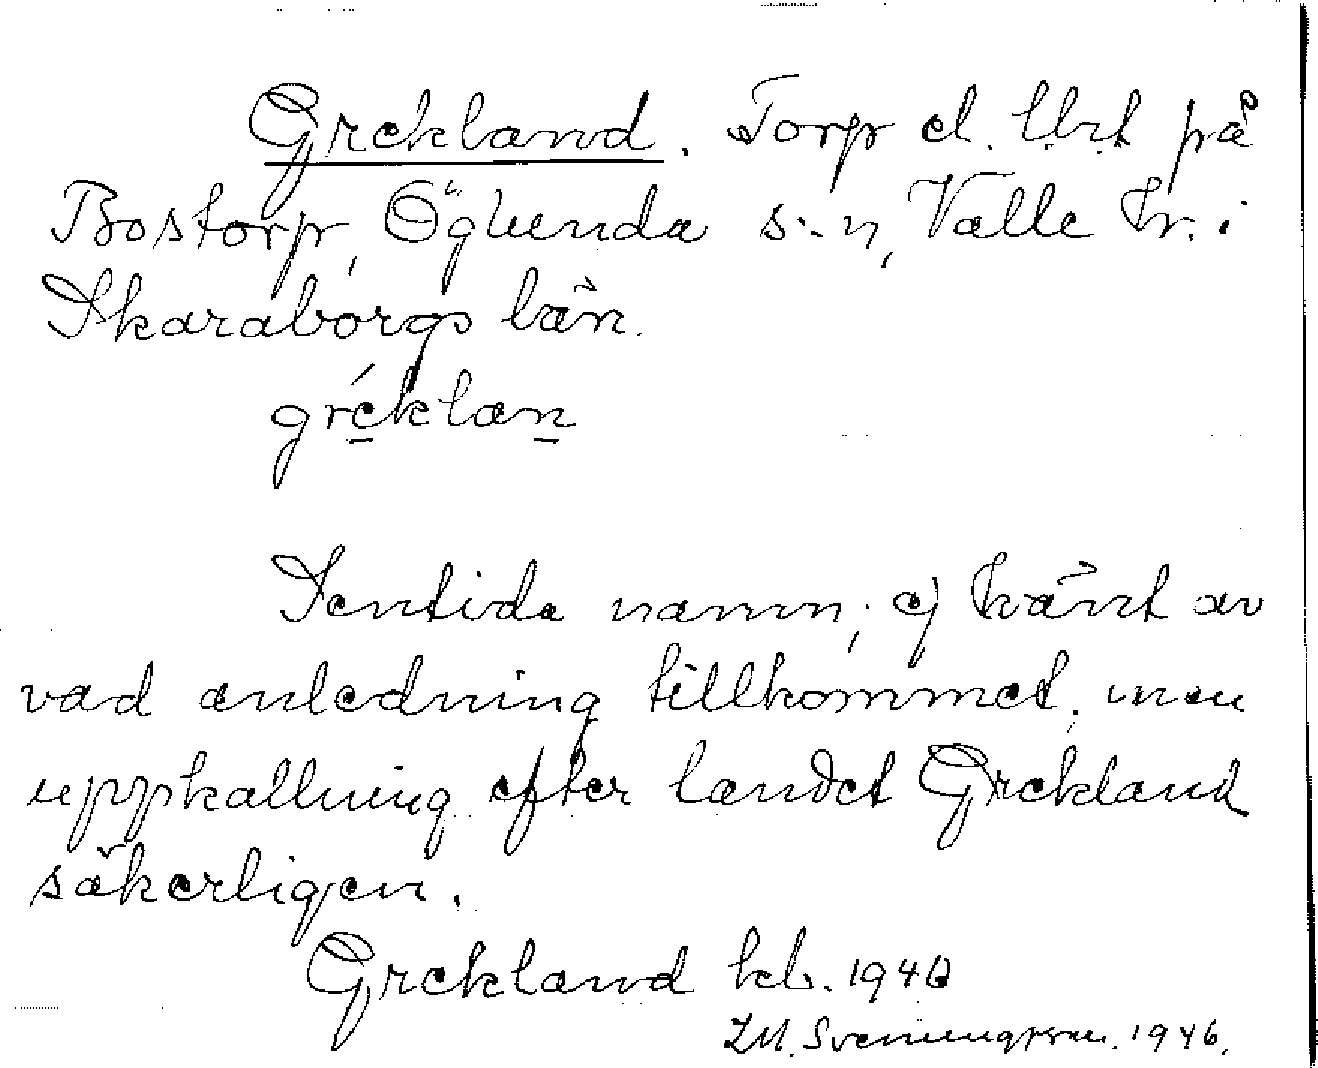 Grekland. Torp el. lht på
Bostorp, Öglunda s:n, Valle hr. i
Skaraborgs län.
gréklan
Sentida namn; ej känt av
vad anledning tillkommet, men
uppkallning efter landet Grekland
säkerligen.
Grekland kb. 1940
Sveningsson. 1946.